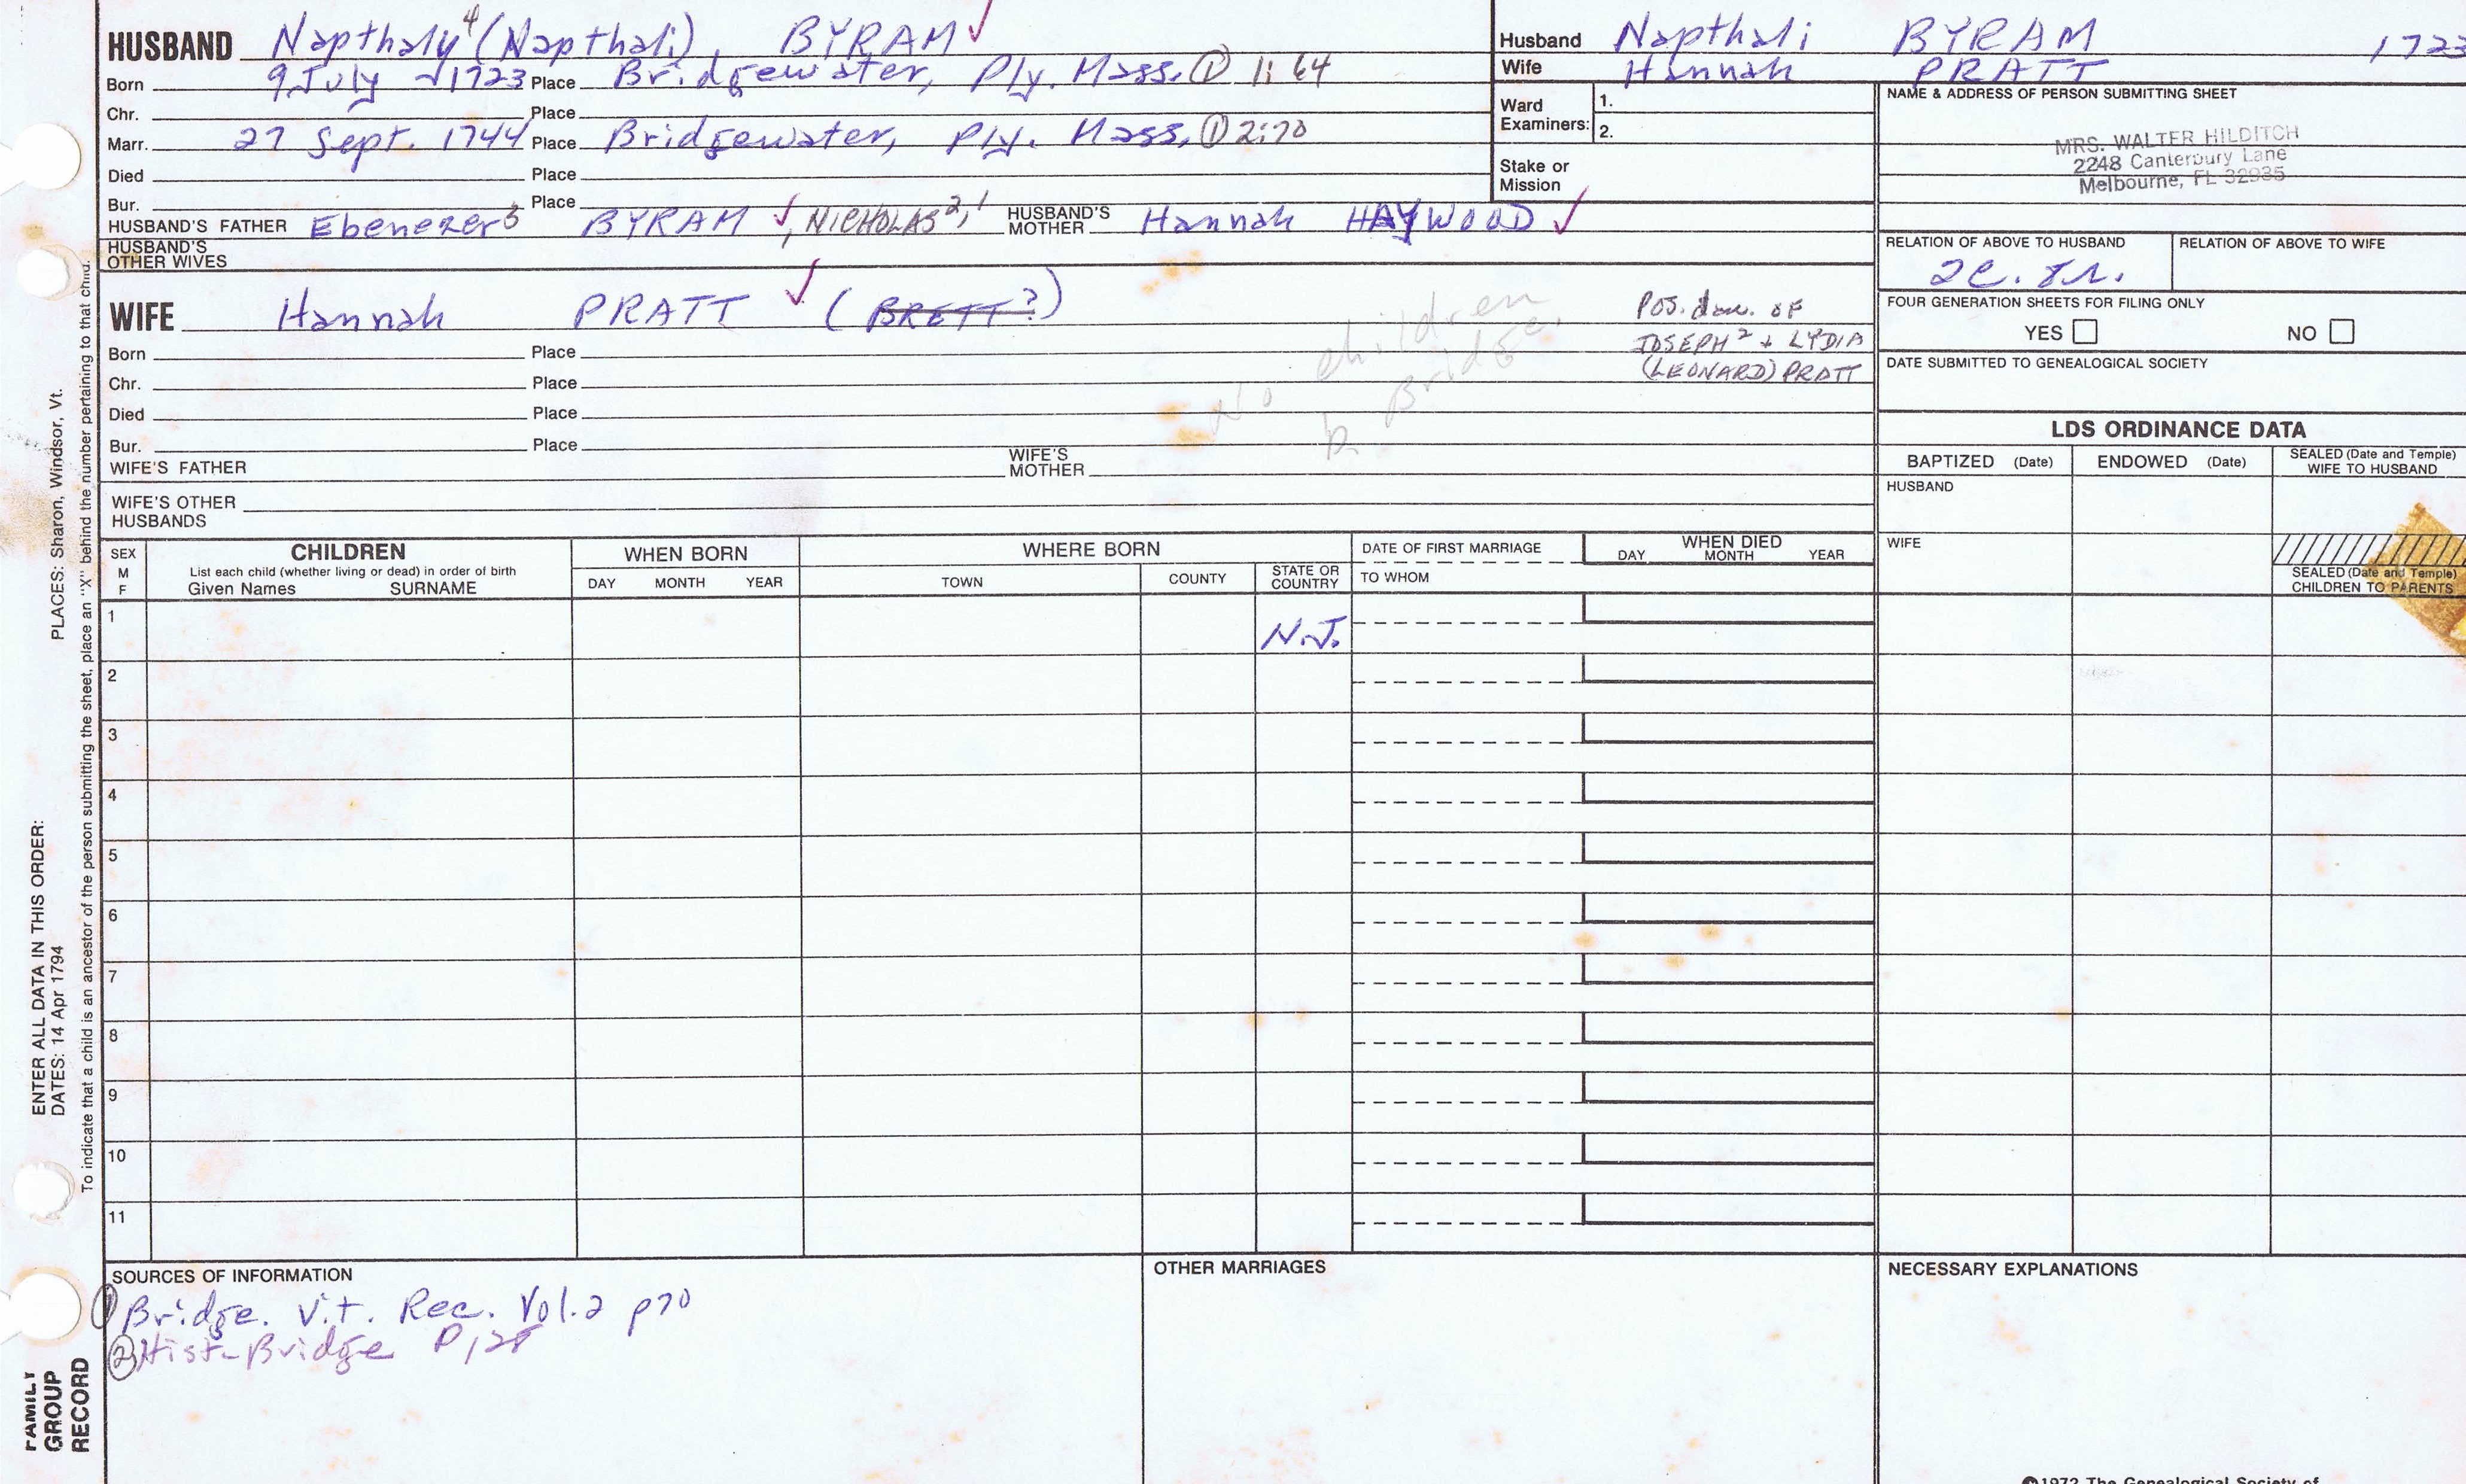 HUSBAND Napthaly⁴ (Napthali), BYRAM ✓
Born 9 July 1723 Place Bridgewater, Ply. Mass. ① 1:64
Chr. Place
Marr. 27 Sept. 1744 Place Bridgewater, Ply. Mass. ① 2:70
Died Place
Bur. Place
HUSBAND'S FATHER Ebenezer³ BYRAM ✓, NICHOLAS²,¹ HUSBAND'S MOTHER Hannah HAYWOOD ✓
HUSBAND'S OTHER WIVES
WIFE Hannah PRATT ✓ (BRETT?)
Born Place
Chr. Place
Died Place
Bur. Place
WIFE'S FATHER WIFE'S MOTHER
WIFE'S OTHER HUSBANDS
No children
b. Bridge.
Pos. dau. of
JOSEPH² + LYDIA
(LEONARD) PRATT
Husband Napthali BYRAM 1723
Wife Hannah PRATT
Ward Examiners: 1.
2.
Stake or Mission
NAME & ADDRESS OF PERSON SUBMITTING SHEET
MRS. WALTER HILDITCH
2248 Canterbury Lane
Melbourne, FL 32935
RELATION OF ABOVE TO HUSBAND RELATION OF ABOVE TO WIFE
FOUR GENERATION SHEETS FOR FILING ONLY
YES NO
DATE SUBMITTED TO GENEALOGICAL SOCIETY
LDS ORDINANCE DATA
BAPTIZED (Date) ENDOWED (Date) SEALED (Date and Temple) WIFE TO HUSBAND
HUSBAND
WIFE
SEALED (Date and Temple) CHILDREN TO PARENTS
SEX M F
CHILDREN
List each child (whether living or dead) in order of birth
Given Names SURNAME
WHEN BORN
DAY MONTH YEAR
WHERE BORN
TOWN COUNTY STATE OR COUNTRY
DATE OF FIRST MARRIAGE
TO WHOM
WHEN DIED
DAY MONTH YEAR
1 N.J.
2
3
4
5
6
7
8
9
10
11
SOURCES OF INFORMATION
① Bridge. Vit. Rec. Vol. 2 p70
② Hist-Bridge P
OTHER MARRIAGES
NECESSARY EXPLANATIONS
©1972 The Genealogical Society of
ENTER ALL DATA IN THIS ORDER:
DATES: 14 Apr 1794 PLACES: Sharon, Windsor, Vt.
To indicate that a child is an ancestor of the person submitting the sheet, place an "X" behind the number pertaining to that child.
FAMILY
GROUP
RECORD